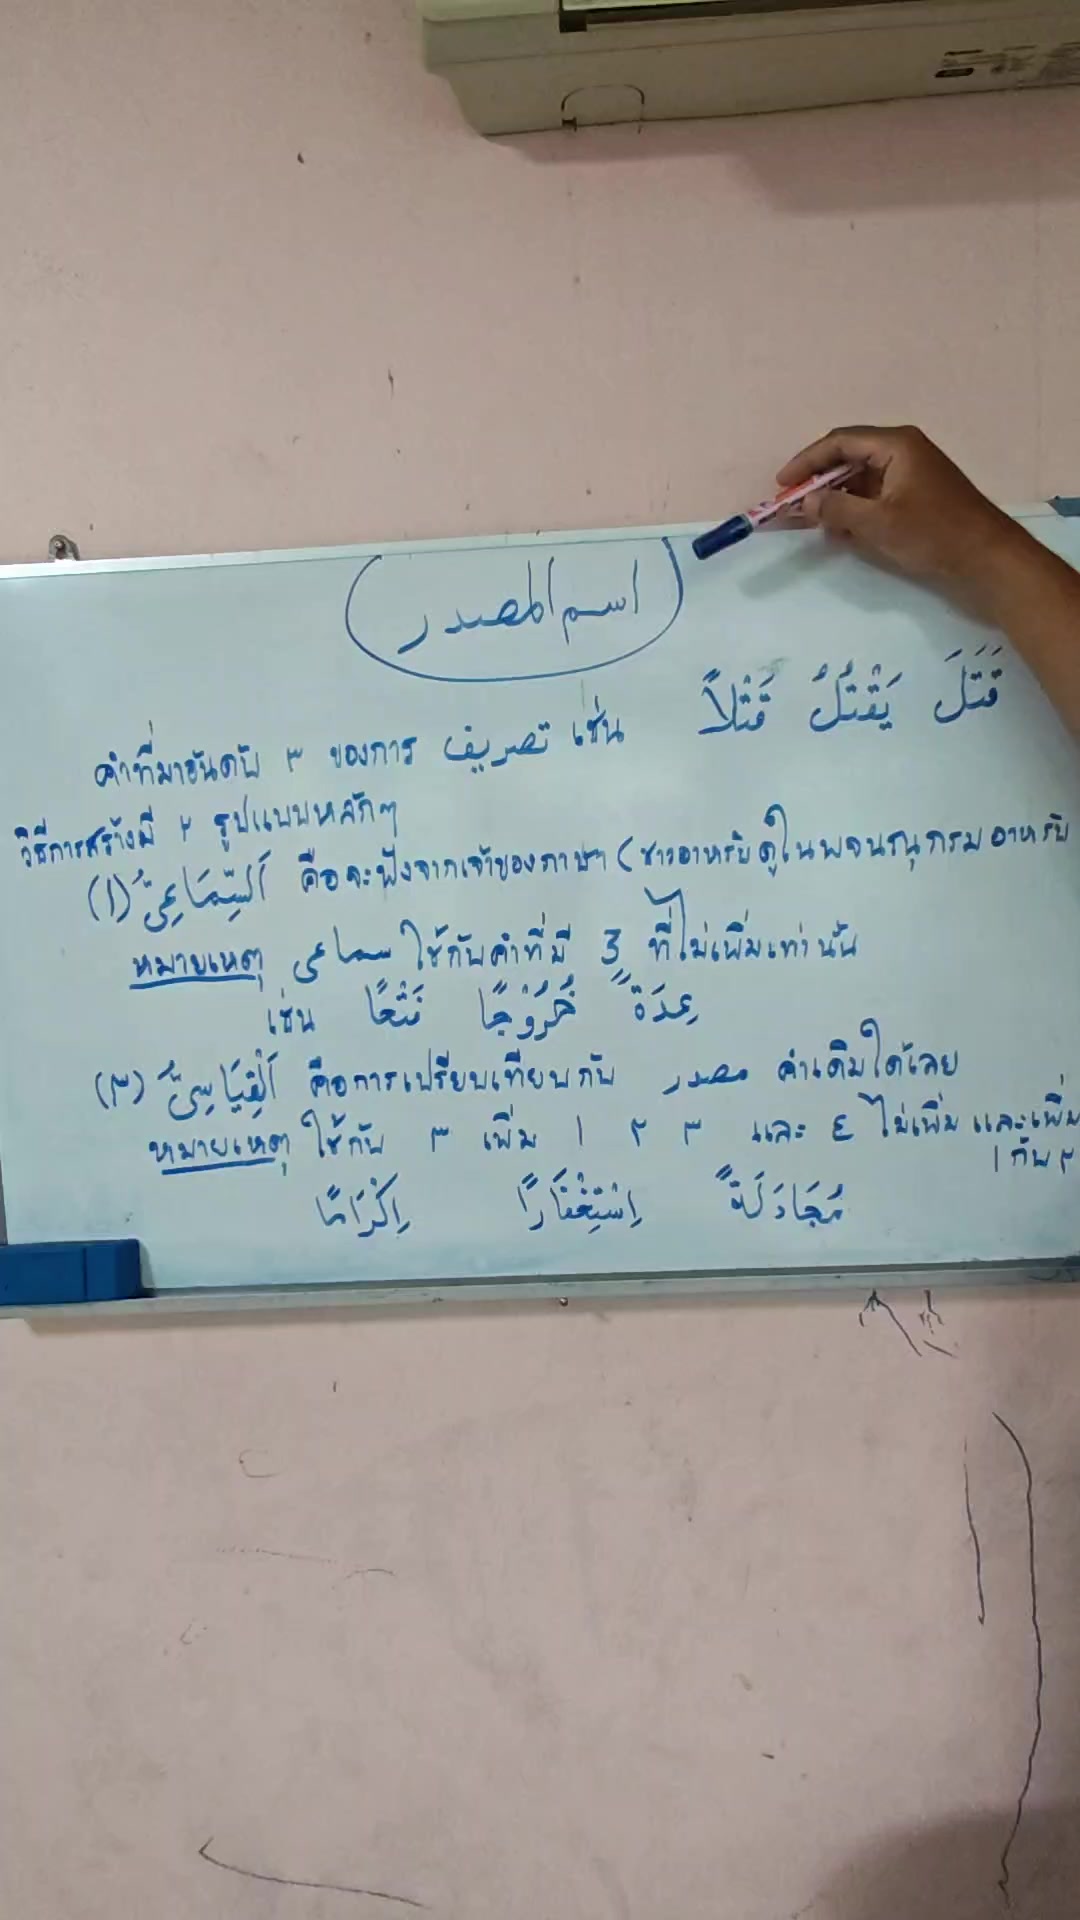 اسم المصدر
คำที่มาอันดับ ٣ ของการ تصريف เช่น قَتَلَ يَقْتُلُ قَتْلاً
วิธีการสร้างมี ٢ รูปแบบหลักๆ
(١) اَلسِّمَاعِيُّ คือจะฟังจากเจ้าของภาษา (ชาวอาหรับดูในพจนนุกรมอาหรับ
หมายเหตุ سماعي ใช้กับคำที่มี 3 ที่ไม่เพิ่มเท่านั้น
เช่น عِدَةً خُرُوْجًا
(٢) اَلْقِيَاسِيُّ คือการเปรียบเทียบกับ مصدر คำเดิมได้เลย
หมายเหตุ ใช้กับ ٣ เพิ่ม ١ ٢ ٣ และ ٤ ไม่เพิ่ม และเพิ่ม
١ กับ ٢
مُجَادَلَةً اِسْتِغْفَارًا اِكْرَامًا